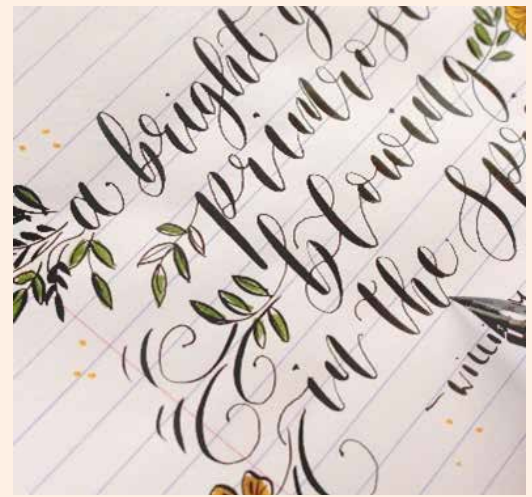 a bright
primros
blowing
in the Spr
- willia